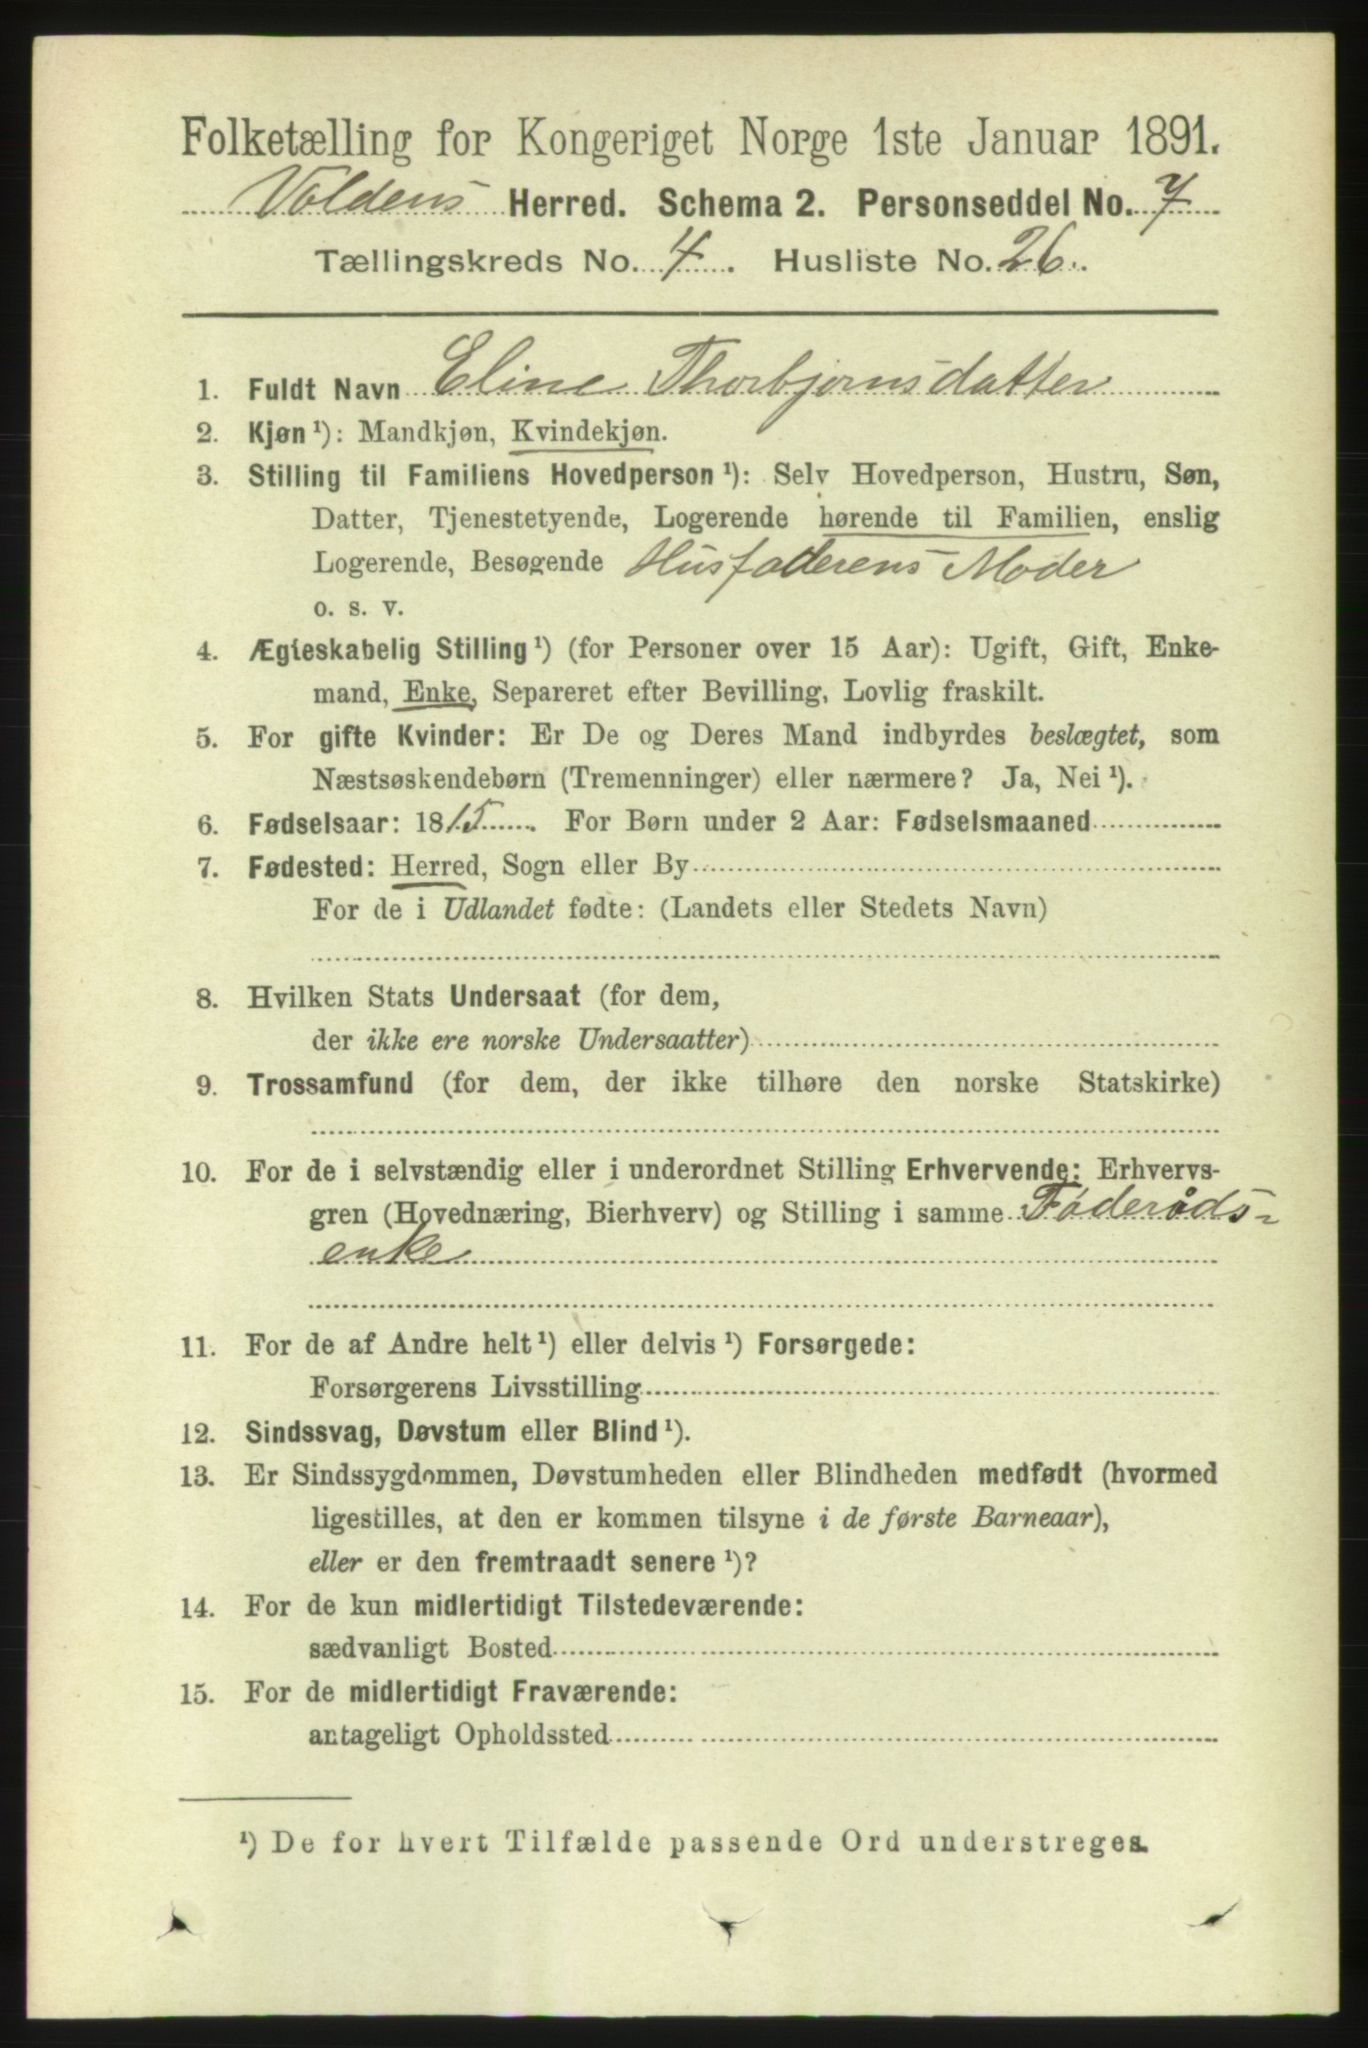 Folketælling for Kongeriget Norge 1ste Januar 1891.
Voldens Herred. Schema 2. Personseddel No. 7
Tællingskreds No. 4. Husliste No. 26.
1. Fuldt Navn Eline Thorbjørnsdatter
2. Kjøn ¹): Mandkjøn, Kvindekjøn.
3. Stilling til Familiens Hovedperson ¹): Selv Hovedperson, Hustru, Søn,
Datter, Tjenestetyende, Logerende hørende til Familien, enslig
Logerende, Besøgende Husfaderens Moder
o. s. v.
4. Ægteskabelig Stilling ¹) (for Personer over 15 Aar): Ugift, Gift, Enke-
mand, Enke, Separeret efter Bevilling, Lovlig fraskilt.
5. For gifte Kvinder: Er De og Deres Mand indbyrdes beslægtet, som
Næstsøskendebørn (Tremenninger) eller nærmere? Ja, Nei ¹).
6. Fødselsaar: 1815. For Børn under 2 Aar: Fødselsmaaned
7. Fødested: Herred, Sogn eller By
For de i Udlandet fødte: (Landets eller Stedets Navn)
8. Hvilken Stats Undersaat (for dem,
der ikke ere norske Undersaatter)
9. Trossamfund (for dem, der ikke tilhøre den norske Statskirke)
10. For de i selvstændig eller i underordnet Stilling Erhvervende: Erhvervs-
gren (Hovednæring, Bierhverv) og Stilling i samme Føderåds-
enke
11. For de af Andre helt ¹) eller delvis ¹) Forsørgede:
Forsørgerens Livsstilling
12. Sindssvag, Døvstum eller Blind ¹).
13. Er Sindssygdommen, Døvstumheden eller Blindheden medfødt (hvormed
ligestilles, at den er kommen tilsyne i de første Barneaar),
eller er den fremtraadt senere ¹)?
14. For de kun midlertidigt Tilstedeværende:
sædvanligt Bosted
15. For de midlertidigt Fraværende:
antageligt Opholdssted
¹) De for hvert Tilfælde passende Ord understreges.